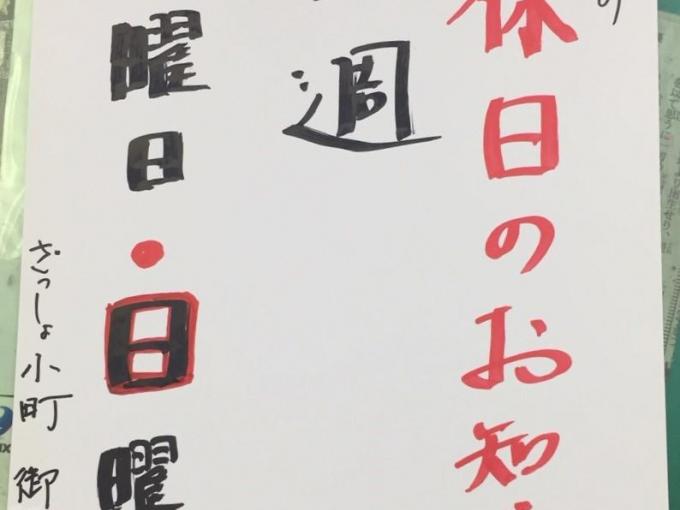 の
休日のお知
週
曜日・日曜
ざっしょ小町 御